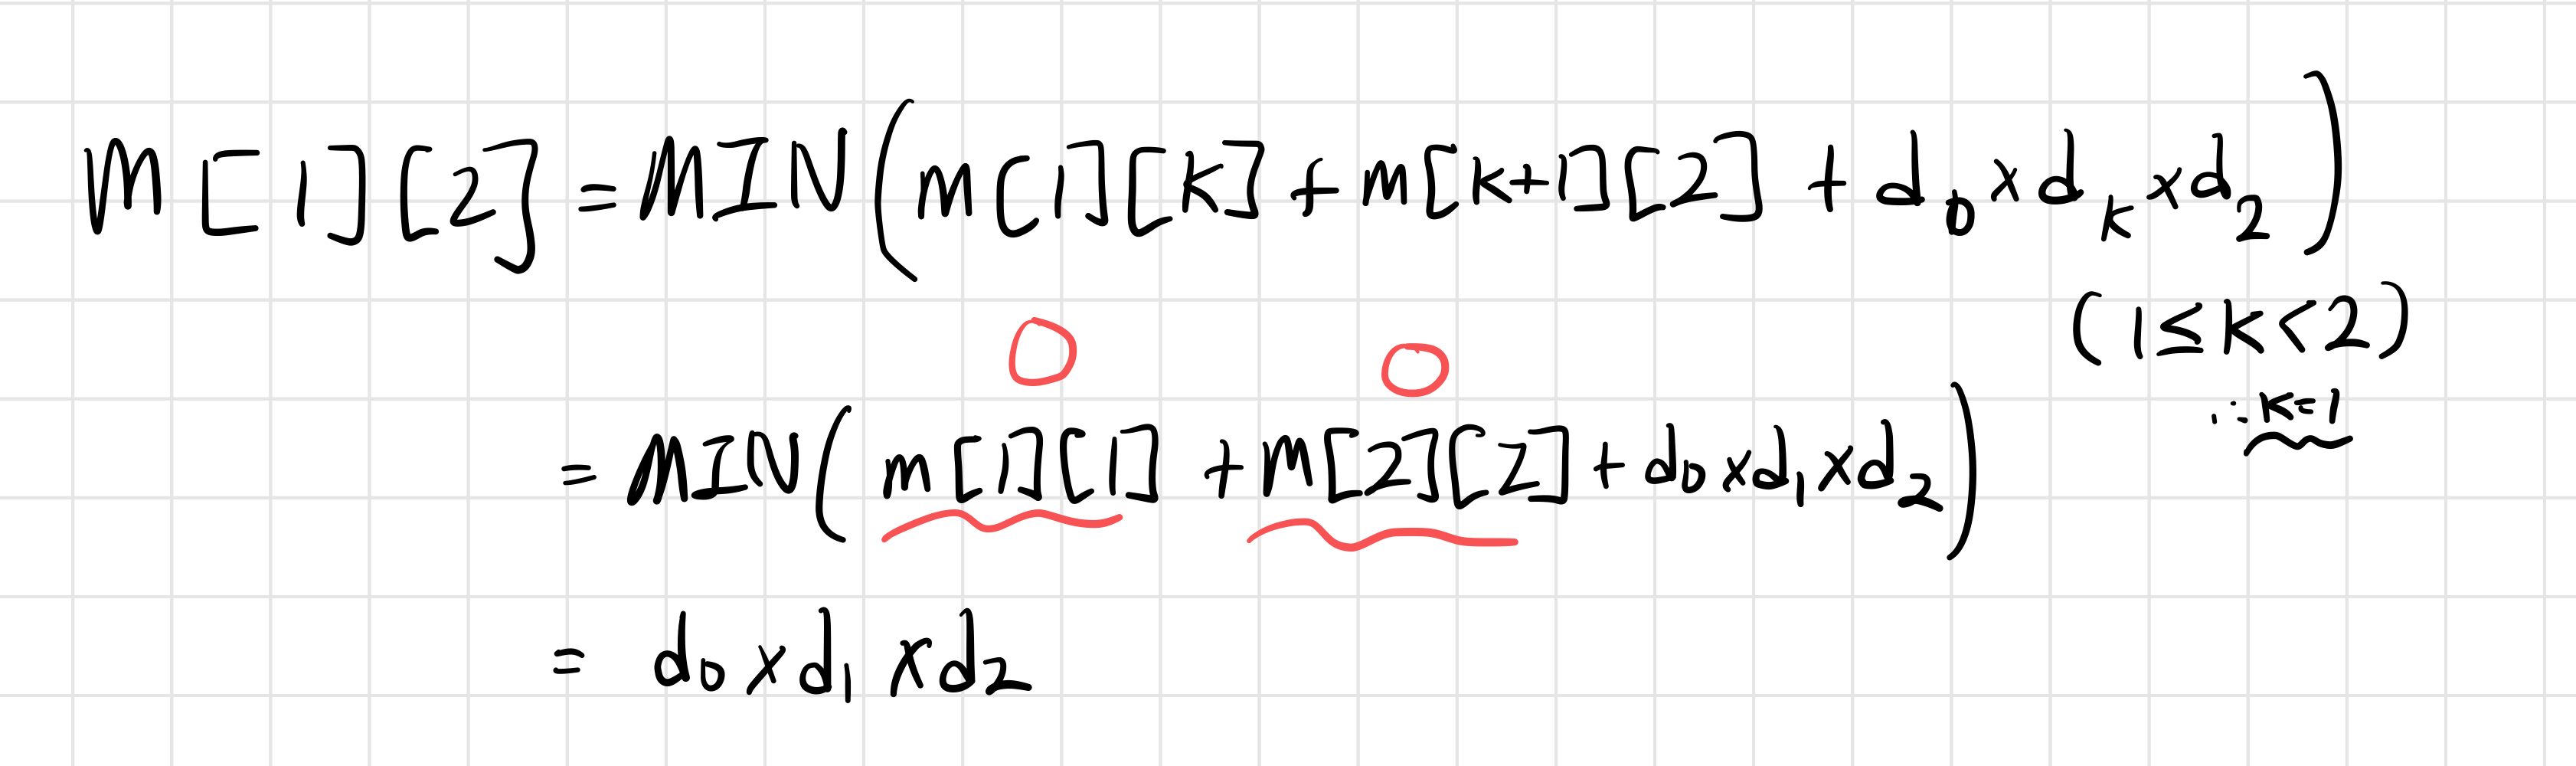 M[1][2] = MIN(m[1][k] + m[k+1][2] + d₀ × dₖ × d₂)
(1 ≤ k < 2)
∴ k=1
0 0
= MIN(m[1][1] + m[2][2] + d₀ × d₁ × d₂)
= d₀ × d₁ × d₂